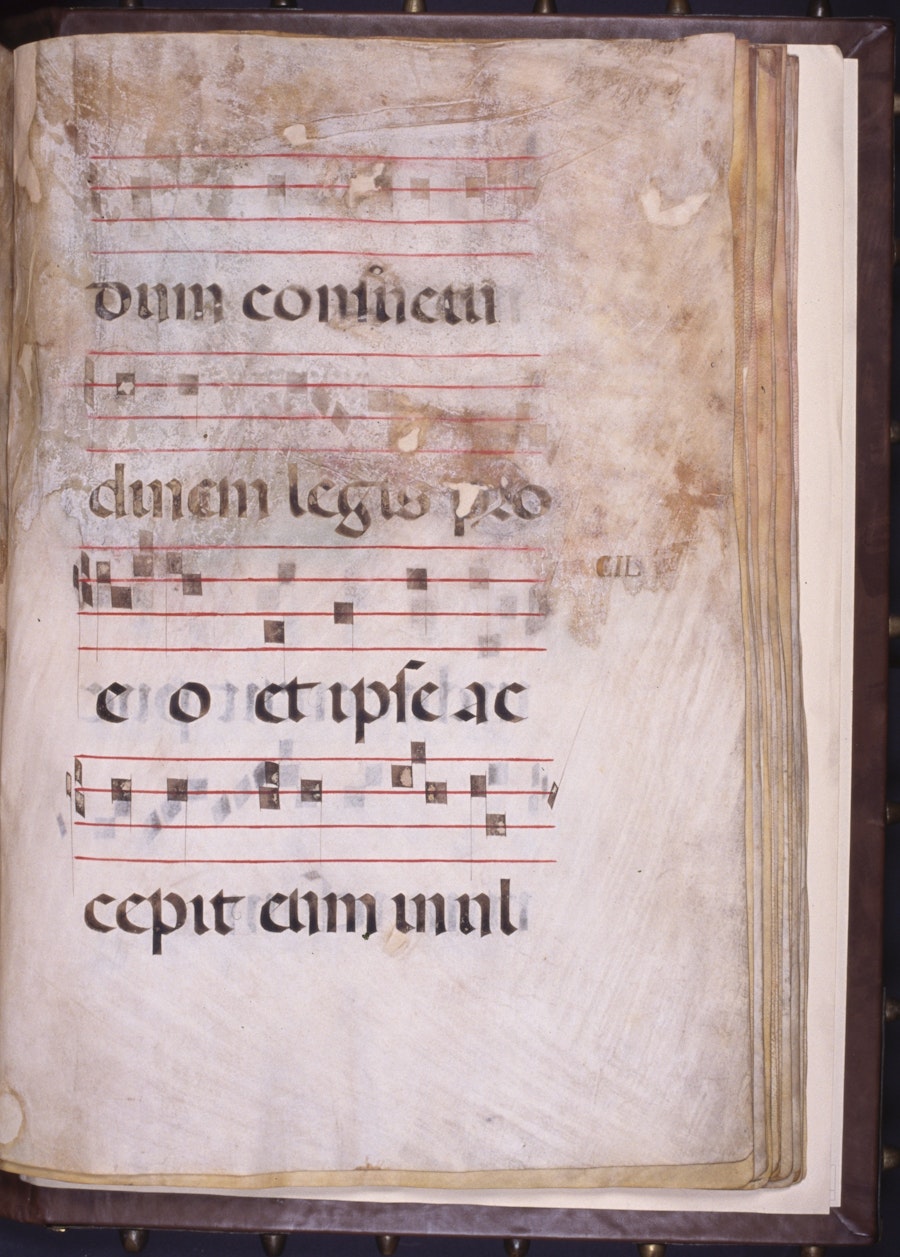 dum consuetu
dinem legis pro
e o et ipse ac
cepit eum in ul